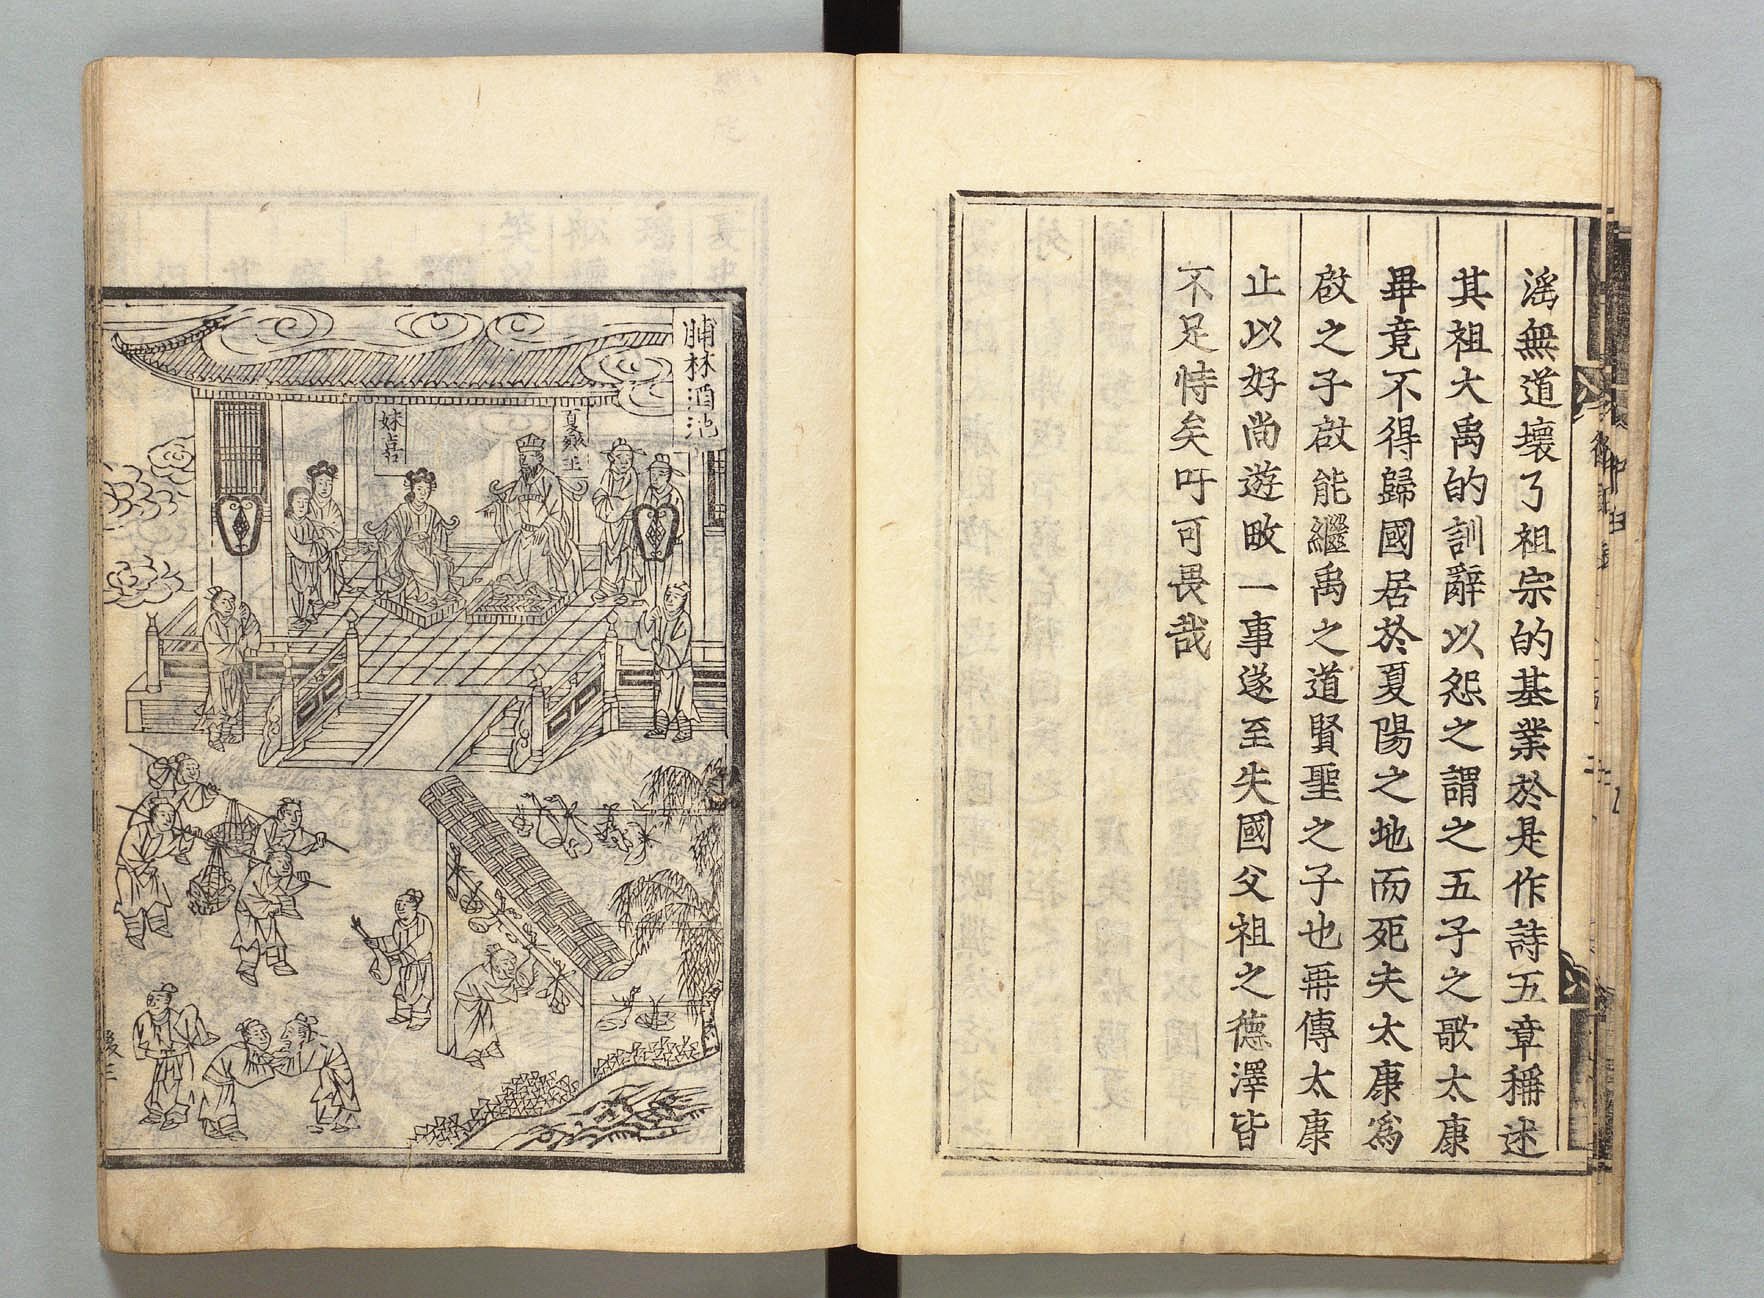 滛無道壞了祖宗的基業於是作詩五章稱述
其祖大禹的訓辭以怨之謂之五子之歌太康
畢竟不得歸國居於夏陽之地而死夫太康爲
啟之子啟能繼禹之道賢聖之子也再傳太康
止以好尚遊畋一事遂至失國父祖之德澤皆
不足恃矣吁可畏哉
脯林酒池
夏桀王
妹喜
後三